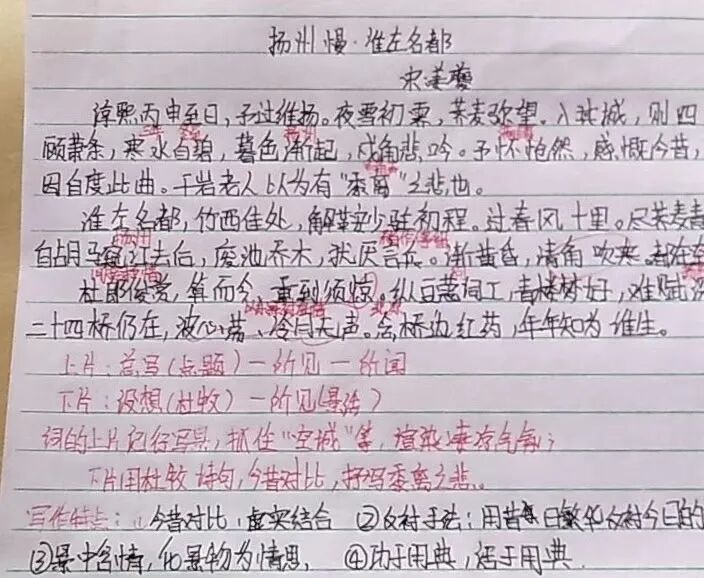 扬州慢·淮左名都
宋姜夔
淳熙丙申至日,予过维扬。夜雪初霁,荠麦弥望。入其城,则四
顾萧条,寒水自碧,暮色渐起,戍角悲吟。予怀怆然,感慨今昔,
因自度此曲。千岩老人以为有“黍离”之悲也。
淮左名都,竹西佳处,解鞍少驻初程。过春风十里。尽荠麦青
自胡马窥江去后,废池乔木,犹厌言兵。渐黄昏,清角吹寒。都在空
杜郎俊赏,算而今、重到须惊。纵豆蔻词工,青楼梦好,难赋深
二十四桥仍在,波心荡、冷月无声。念桥边红药,年年知为谁生。
上片:总写(点题)一所见一所闻
下片:设想(杜牧)一所见(悬念)
词的上片记行写景,抓住“空城”等,渲染凄凉气氛;
下片用杜牧诗句,今昔对比,抒写黍离之悲。
写作特点:①今昔对比,虚实结合 ②反衬手法:用昔日繁华反衬今日的
③景中含情,化景物为情思, ④功于用典,活于用典.